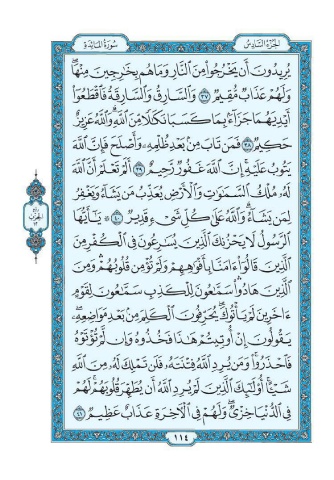 الجزء السادس
سورة المائدة
يُرِيدُونَ أَن يَخْرُجُوا۟ مِنَ ٱلنَّارِ وَمَا هُم بِخَٰرِجِينَ مِنْهَا ۖ
وَلَهُمْ عَذَابٌ مُّقِيمٌ ٣٧ وَٱلسَّارِقُ وَٱلسَّارِقَةُ فَٱقْطَعُوٓا۟
أَيْدِيَهُمَا جَزَآءًۢ بِمَا كَسَبَا نَكَٰلًا مِّنَ ٱللَّهِ ۗ وَٱللَّهُ عَزِيزٌ
حَكِيمٌ ٣٨ فَمَن تَابَ مِنۢ بَعْدِ ظُلْمِهِۦ وَأَصْلَحَ فَإِنَّ ٱللَّهَ
يَتُوبُ عَلَيْهِ ۗ إِنَّ ٱللَّهَ غَفُورٌ رَّحِيمٌ ٣٩ أَلَمْ تَعْلَمْ أَنَّ ٱللَّهَ
لَهُۥ مُلْكُ ٱلسَّمَٰوَٰتِ وَٱلْأَرْضِ يُعَذِّبُ مَن يَشَآءُ وَيَغْفِرُ
لِمَن يَشَآءُ ۗ وَٱللَّهُ عَلَىٰ كُلِّ شَىْءٍ قَدِيرٌ ٤٠ ۞ يَٰٓأَيُّهَا
ٱلرَّسُولُ لَا يَحْزُنكَ ٱلَّذِينَ يُسَٰرِعُونَ فِى ٱلْكُفْرِ مِنَ
ٱلَّذِينَ قَالُوٓا۟ ءَامَنَّا بِأَفْوَٰهِهِمْ وَلَمْ تُؤْمِن قُلُوبُهُمْ ۛ وَمِنَ
ٱلَّذِينَ هَادُوا۟ ۛ سَمَّٰعُونَ لِلْكَذِبِ سَمَّٰعُونَ لِقَوْمٍ
ءَاخَرِينَ لَمْ يَأْتُوكَ ۖ يُحَرِّفُونَ ٱلْكَلِمَ مِنۢ بَعْدِ مَوَاضِعِهِۦ ۖ
يَقُولُونَ إِنْ أُوتِيتُمْ هَٰذَا فَخُذُوهُ وَإِن لَّمْ تُؤْتَوْهُ
فَٱحْذَرُوا۟ ۚ وَمَن يُرِدِ ٱللَّهُ فِتْنَتَهُۥ فَلَن تَمْلِكَ لَهُۥ مِنَ ٱللَّهِ
شَيْـًٔا ۚ أُو۟لَٰٓئِكَ ٱلَّذِينَ لَمْ يُرِدِ ٱللَّهُ أَن يُطَهِّرَ قُلُوبَهُمْ ۚ لَهُمْ
فِى ٱلدُّنْيَا خِزْىٌ ۖ وَلَهُمْ فِى ٱلْـَٔاخِرَةِ عَذَابٌ عَظِيمٌ ٤١
١١٤